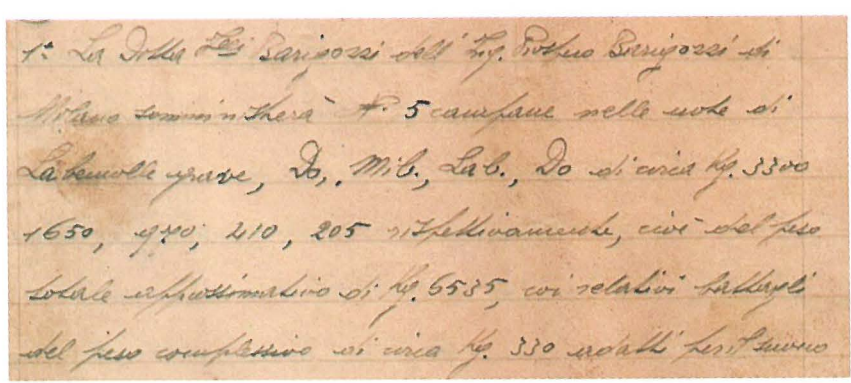 1° La Ditta F.lli Barigozzi dell' Ing. Prospero Barigozzi di
Milano somministrerà N° 5 campane nelle note di
La bemolle grave, Do, Mib., Lab., Do di circa Kg. 3300
1650, 970, 410, 205 rispettivamente, cioè del peso
totale approssimativo di Kg. 6535, coi relativi battagli
del peso complessivo di circa Kg. 330 adatti per il suono